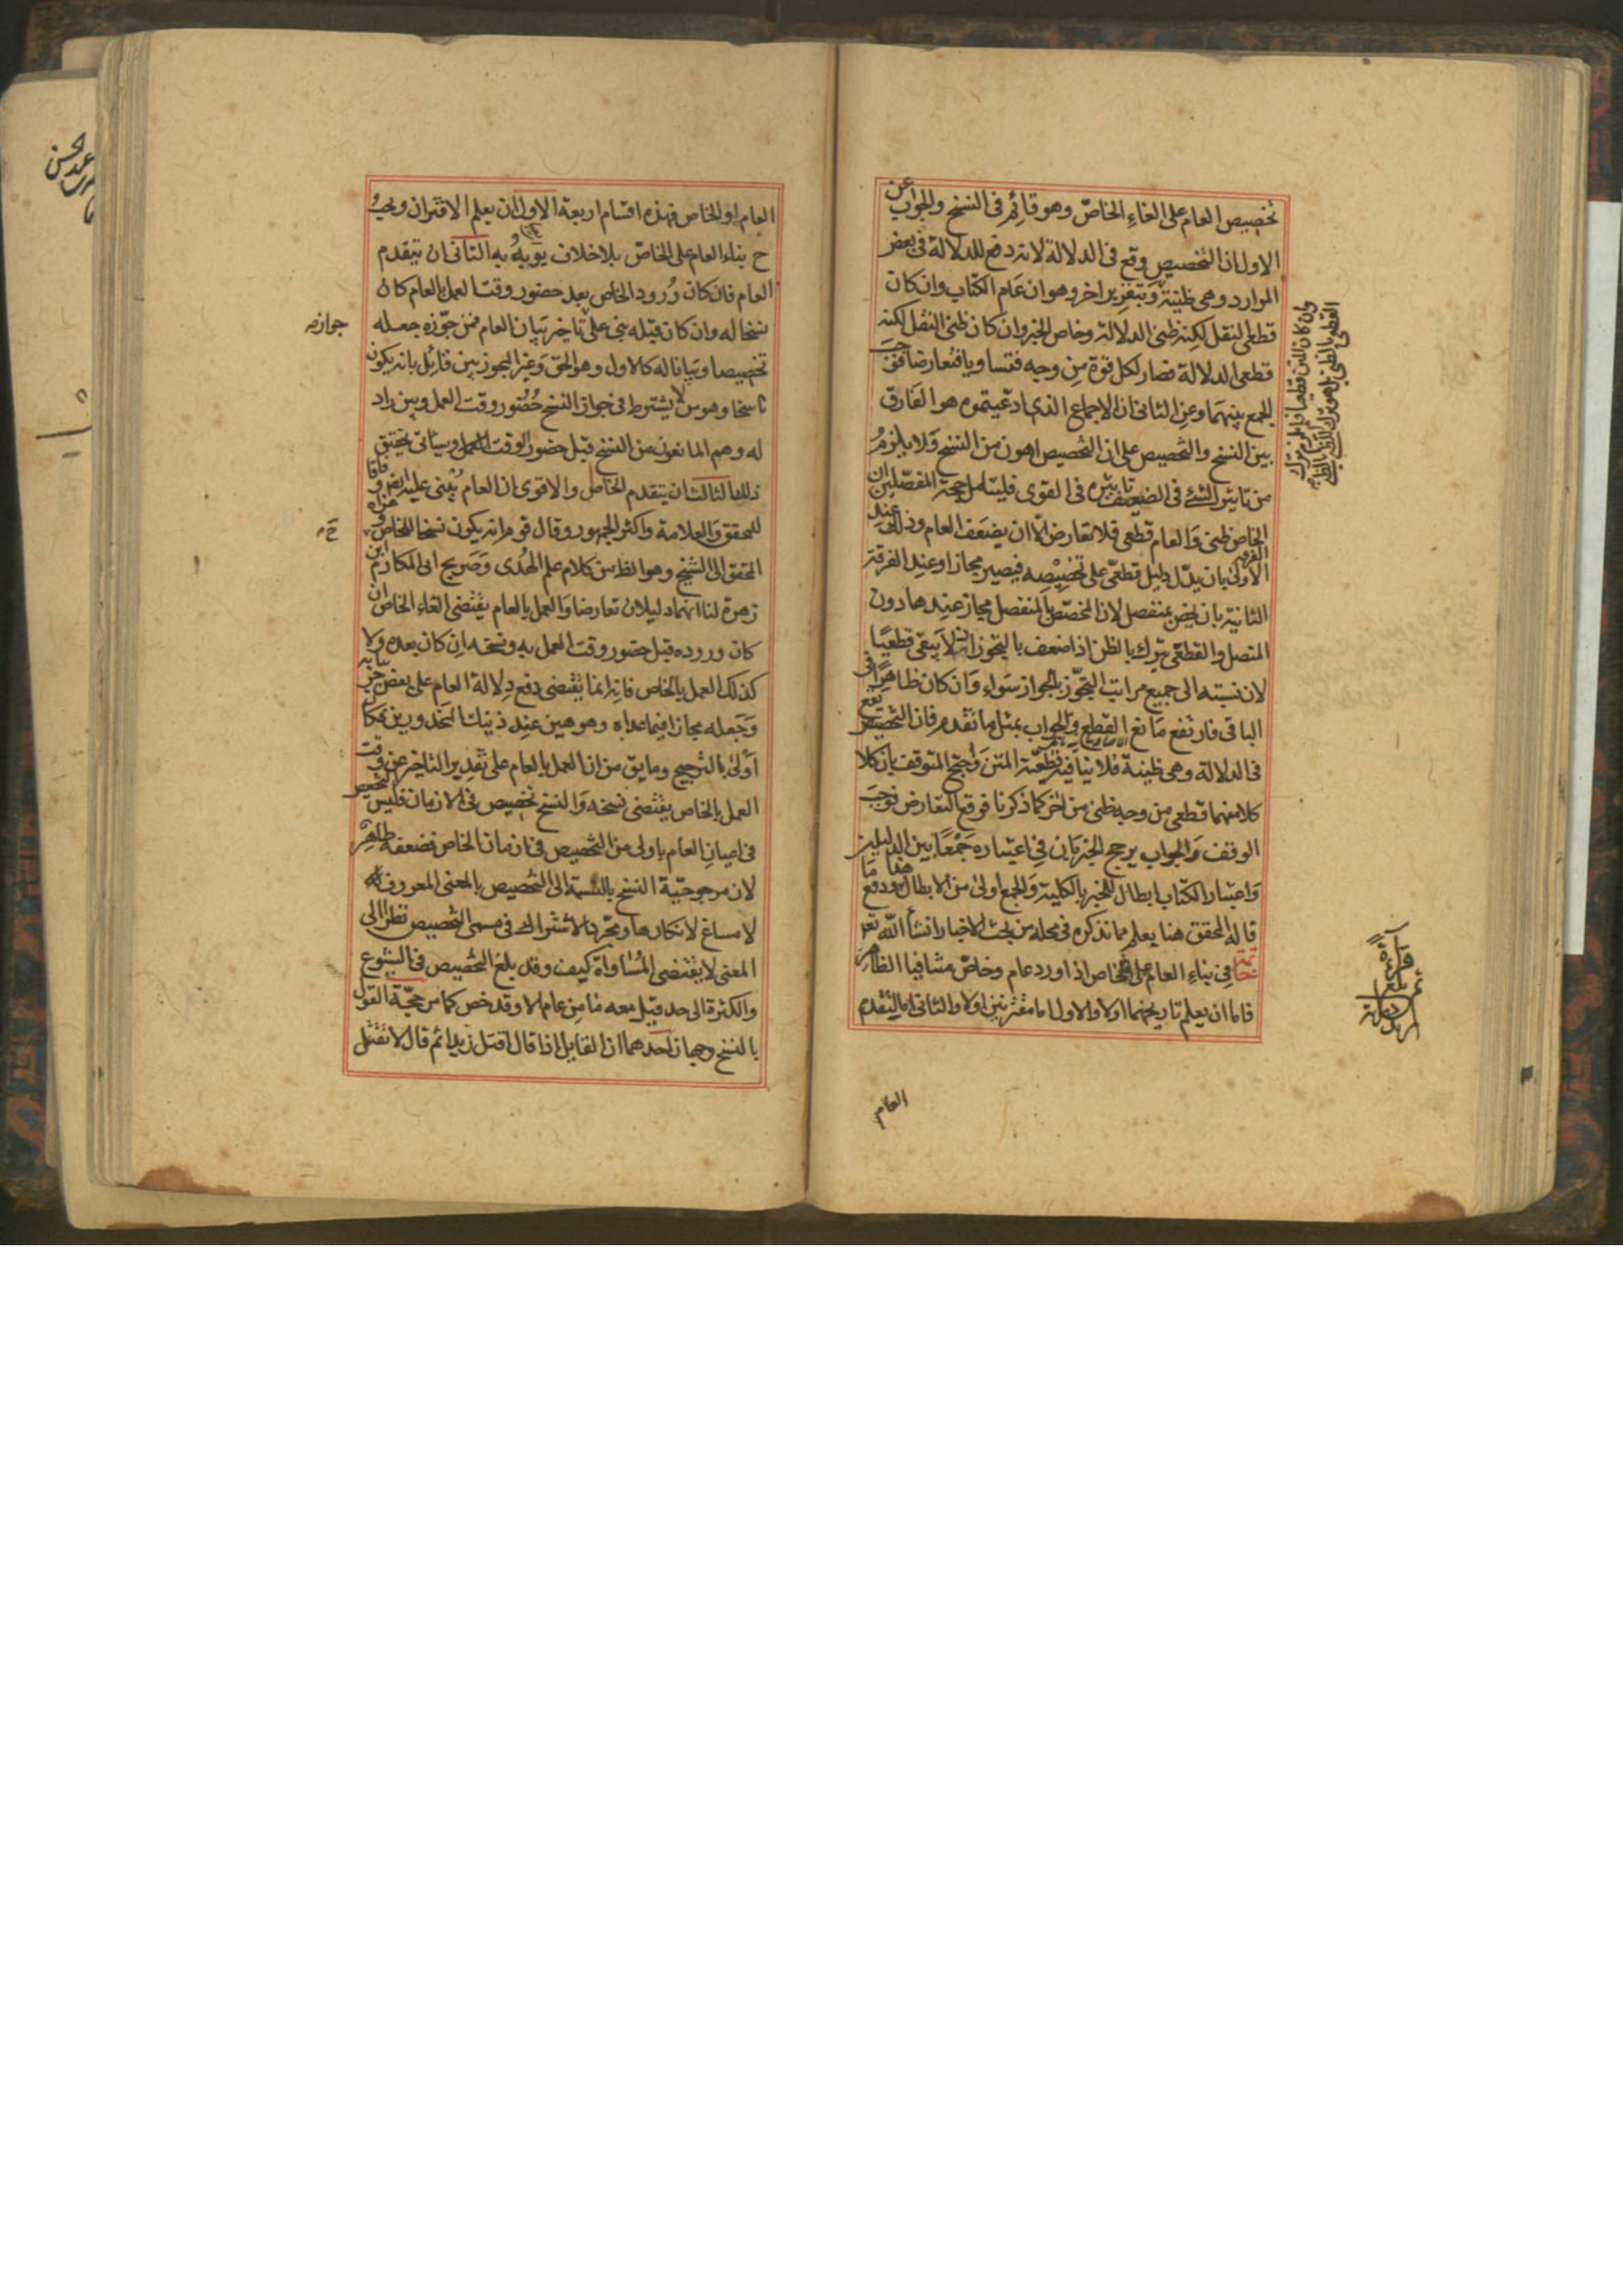 تخصيص العام على الغاء الخاص وهو قائم فى النسخ والجواب عن
الاول ان التخصيص وقع فى الدلالة لانه دفع للدلالة فى بعض
الموارد وهى ظنية وبتقرير اخر وهو ان عام الكتاب وان كان
قطعى النقل لكنه ظنى الدلالة وخاص الخبر وان كان ظنى النقل لكنه
قطعى الدلالة فصار لكل قوة من وجه فتساويا فتعارضا فوجب
الجمع بينهما وعن الثانى ان الاجماع الذى ادعيتموه هو الفارق
بين النسخ والتخصيص على ان التخصيص اهون من النسخ ولا يلزم
من تاثير الشئ فى الضعيف تاثيره فى القوى فليتامل حجة المفصلين ان
الخاص ظنى والعام قطعى فلا تعارض الا ان يضعف العام وذلك عند
الفرقة الاولى بان يدل دليل قطعى على تخصيصه فيصير مجازا وعند الفرقة
الثانية بان يخص بمنفصل لان المخصص بالمنفصل مجاز عندها دون
المتصل والقطعى يترك بالظن اذا ضعف بالتجوز اذ لا يبقى قطعيا
لان نسبته الى جميع مراتب التجوز بالجواز سواء وان كان ظاهرا فى
الباقى فارتفع مانع القطع والجواب بمثل ما تقدم فان التخصيص يقع
فى الدلالة وهى ظنية فلا ينافيه قطعية المتن واحتج المتوقف بان كلا
كلا منهما قطعى من وجه ظنى من اخر كما ذكرنا فوقع التعارض فوجب
الوقف والجواب يرجح الخبر بان فى اعتباره جمعا بين الدليلين
واعتبار الكتاب ابطال للخبر بالكلية والجمع اولى من الابطال هذا ودفع ما
قاله المحقق هنا يعلم مما نذكره فى محله من بحث الاخبار انشاء الله تعا
خاتمة فى بناء العام على الخاص اذا ورد عام وخاص متنافيا الظاهر
فاما ان يعلم تاريخهما اولا والاول اما مقترنين اولا والثانى اما ليتقدم
العام
العام او الخاص فهذه اقسام اربعة الاول ان يعلم الاقتران ويجب
ح بناء العام على الخاص بلا خلاف يؤبه به الثانى ان يتقدم
العام فان كان ورود الخاص بعد حضور وقت العمل بالعام كان
نسخا له وان كان قبله بنى على تاخير بيان العام فمن جوزه جعله
تخصيصا وبيانا له كالاول وهو الحق وغير المجوز بين قائل بانه يكون
ناسخا وهو من لا يشترط فى جواز النسخ حضور وقت العمل وبين راد
له وهم المانعون من النسخ قبل حضور الوقت العمل وسياتى تحقيق
ذلك الثالث ان يتقدم الخاص والاقوى ان العام يبنى عليه ايضا وفاقا
للمحقق والعلامة واكثر الجمهور وقال قوم انه يكون نسخا للخاص وعزاه
المحقق الى الشيخ وهو الظ من كلام علم الهدى وصريح ابى المكارم ابن
زهرة لنا انهما دليلان تعارضا والعمل بالعام يقتضى الغاء الخاص ان
كان وروده قبل حضور وقت العمل به ونسخه ان كان بعده ولا
كذلك العمل بالخاص فانه انما يقتضى دفع دلالة العام على بعض جزئياته
وجعله مجازا فيما عداه وهو هين عند ذينك المحذورين فكان
اولى بالترجيح وما يق من ان العمل بالعام على تقدير التاخر عن وقت
العمل بالخاص يقتضى نسخه والنسخ تخصيص فى الازمان فليس التخصيص
فى اعيان العام باولى من التخصيص فى ازمان الخاص فضعفه ظاهر
لان مرجوحية النسخ بالنسبة الى التخصيص بالمعنى المعروف
لا مساغ لانكارها ومجرد الاشتراك فى مسمى التخصيص نظرا الى
المعنى لا يقتضى المساواة كيف وقد بلغ التخصيص فى الشيوع
والكثرة الى حد قيل معه ما من عام الا وقد خص كما مر حجة القول
بالنسخ وجهان احدهما ان القايل اذا قال اقتل زيدا ثم قال لا تقتل
جوازه